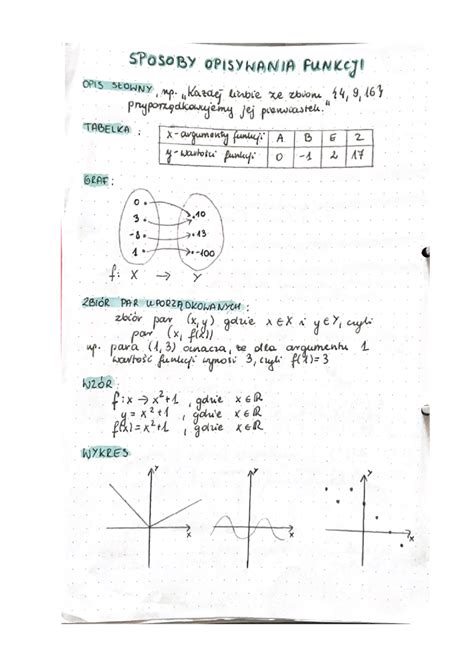 SPOSOBY OPISYWANIA FUNKCJI
OPIS SŁOWNY, np. „Każdej liczbie ze zbioru {4, 9, 16}
przyporządkowujemy jej pierwiastek."
TABELKA :
x-argumenty funkcji A B E Z
y-wartości funkcji 0 -1 2 17
GRAF:
0 10
3
-8 13
1 -100
f: X → Y
ZBIÓR PAR UPORZĄDKOWANYCH:
zbiór par (x, y) gdzie x ∈ X i y ∈ Y, czyli
par (x, f(x))
np. para (1, 3) oznacza, że dla argumentu 1
wartość funkcji wynosi 3, czyli f(1)=3
WZÓR:
f: x → x²+1 , gdzie x ∈ ℝ
y = x²+1 , gdzie x ∈ ℝ
f(x) = x²+1 , gdzie x ∈ ℝ
WYKRES
y y y
x x x